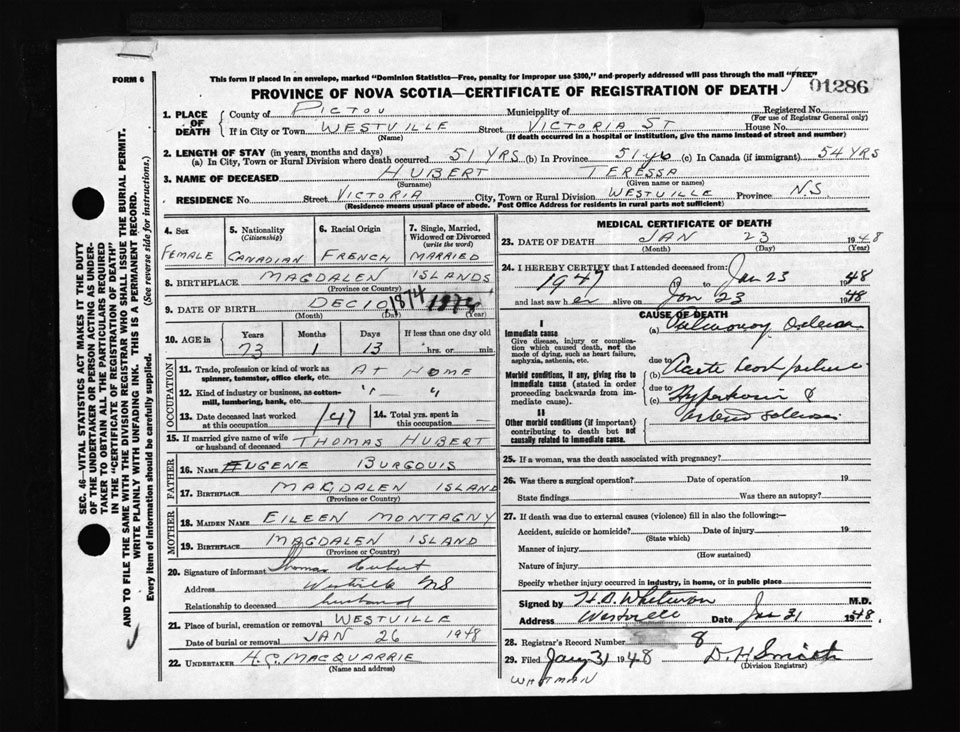 FORM 6
This form if placed in an envelope, marked "Dominion Statistics—Free, penalty for improper use $300," and properly addressed will pass through the mail "FREE"
01286
PROVINCE OF NOVA SCOTIA—CERTIFICATE OF REGISTRATION OF DEATH
1. PLACE OF DEATH
County of PICTOU Municipality of Registered No.
(For use of Registrar General only)
If in City or Town WESTVILLE Street VICTORIA ST House No.
(Name) (If death occurred in a hospital or institution, give the name instead of street and number)
2. LENGTH OF STAY (in years, months and days)
(a) In City, Town or Rural Division where death occurred 51 YRS (b) In Province 51 yrs (c) In Canada (if immigrant) 54 YRS
3. NAME OF DECEASED HUBERT TERESSA
(Surname) (Given name or names)
RESIDENCE No. Street VICTORIA City, Town or Rural Division WESTVILLE Province N.S
(Residence means usual place of abode. Post Office Address for residents in rural parts not sufficient)
4. Sex
FEMALE
5. Nationality
(Citizenship)
CANADIAN
6. Racial Origin
FRENCH
7. Single, Married, Widowed or Divorced
(write the word)
MARRIED
8. BIRTHPLACE MAGDALEN ISLANDS
(Province or Country)
9. DATE OF BIRTH DEC 10 1874 1874
(Month) (Day) (Year)
10. AGE in
Years Months Days If less than one day old
73 1 13 hrs. or min.
OCCUPATION
11. Trade, profession or kind of work as spinner, teamster, office clerk, etc. AT HOME
12. Kind of industry or business, as cotton-mill, lumbering, bank, etc. " "
13. Date deceased last worked at this occupation 1/47
14. Total yrs. spent in this occupation
15. If married give name of wife or husband of deceased THOMAS HUBERT
FATHER
16. NAME EUGENE BURGOUIS
17. BIRTHPLACE MAGDALEN ISLAND
(Province or Country)
MOTHER
18. MAIDEN NAME EILEEN MONTAGNY
19. BIRTHPLACE MAGDALEN ISLAND
(Province or Country)
20. Signature of informant Thomas Hubert
Address Westville NS
Relationship to deceased husband
21. Place of burial, cremation or removal WESTVILLE
Date of burial or removal JAN 26 1948
22. UNDERTAKER H.C. MACQUARRIE
(Name and address)
MEDICAL CERTIFICATE OF DEATH
23. DATE OF DEATH JAN 23 1948
(Month) (Day) (Year)
24. I HEREBY CERTIFY that I attended deceased from:
1947 19 to Jan 23 1948
and last saw her alive on Jan 23 1948
CAUSE OF DEATH
I
Immediate cause
Give disease, injury or complication which caused death, not the mode of dying, such as heart failure, asphyxia, asthenia, etc.
(a) Pulmonary Oedema
due to
Morbid conditions, if any, giving rise to immediate cause (stated in order proceeding backwards from immediate cause).
(b) Acute heart failure
due to
(c) Hypertension &
II
Other morbid conditions (if important) contributing to death but not causally related to immediate cause.
25. If a woman, was the death associated with pregnancy?
26. Was there a surgical operation? Date of operation 19
State findings Was there an autopsy?
27. If death was due to external causes (violence) fill in also the following:—
Accident, suicide or homicide? Date of injury 19
(State which)
Manner of injury
(How sustained)
Nature of injury
Specify whether injury occurred in industry, in home, or in public place
Signed by H.B. Whitman M.D.
Address Westville Date Jan 31 1948
28. Registrar's Record Number 8
29. Filed Jany 31 1948 D. H. Smith
(Division Registrar)
WHITMAN
SEC. 46—VITAL STATISTICS ACT MAKES IT THE DUTY
OF THE UNDERTAKER OR PERSON ACTING AS UNDER-
TAKER TO OBTAIN ALL THE PARTICULARS REQUIRED
IN THE "CERTIFICATE OF REGISTRATION OF DEATH"
AND TO FILE THE SAME WITH THE DIVISION REGISTRAR WHO SHALL ISSUE THE BURIAL PERMIT.
WRITE PLAINLY WITH UNFADING INK. THIS IS A PERMANENT RECORD.
Every item of information should be carefully supplied. (See reverse side for instructions.)